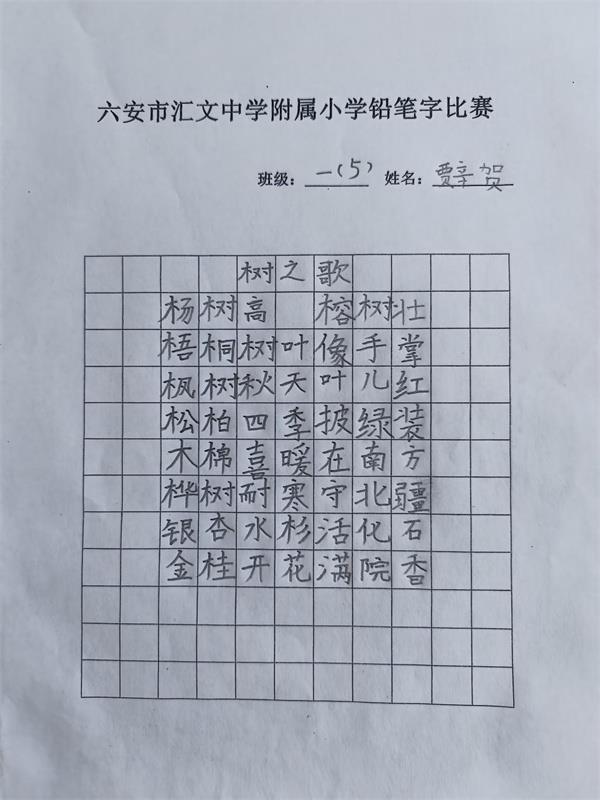 六安市汇文中学附属小学铅笔字比赛
班级：一(5) 姓名：贾辛贺
树之歌
杨树高 榕树壮
梧桐树叶像手掌
枫树秋天叶儿红
松柏四季披绿装
木棉喜暖在南方
桦树耐寒守北疆
银杏水杉活化石
金桂开花满院香